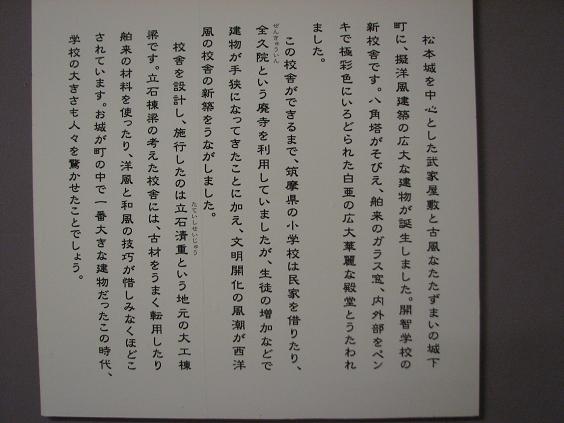 松本城を中心とした武家屋敷と古風なたたずまいの城下
町に、擬洋風建築の広大な建物が誕生しました。開智学校の
新校舎です。八角塔がそびえ、舶来のガラス窓、内外部をペン
キで極彩色にいろどられた白亜の広大華麗な殿堂とうたわれ
ました。
この校舎ができるまで、筑摩県の小学校は民家を借りたり、
ぜんきゅういん
全久院という廃寺を利用していましたが、生徒の増加などで
建物が手狭になってきたことに加え、文明開化の風潮が西洋
風の校舎の新築をうながしました。
たていしせいじゅう
校舎を設計し、施行したのは立石清重という地元の大工棟
梁です。立石棟梁の考えた校舎には、古材をうまく転用したり
舶来の材料を使ったり、洋風と和風の技巧が惜しみなくほどこ
されています。お城が町の中で一番大きな建物だったこの時代、
学校の大きさも人々を驚かせたことでしょう。